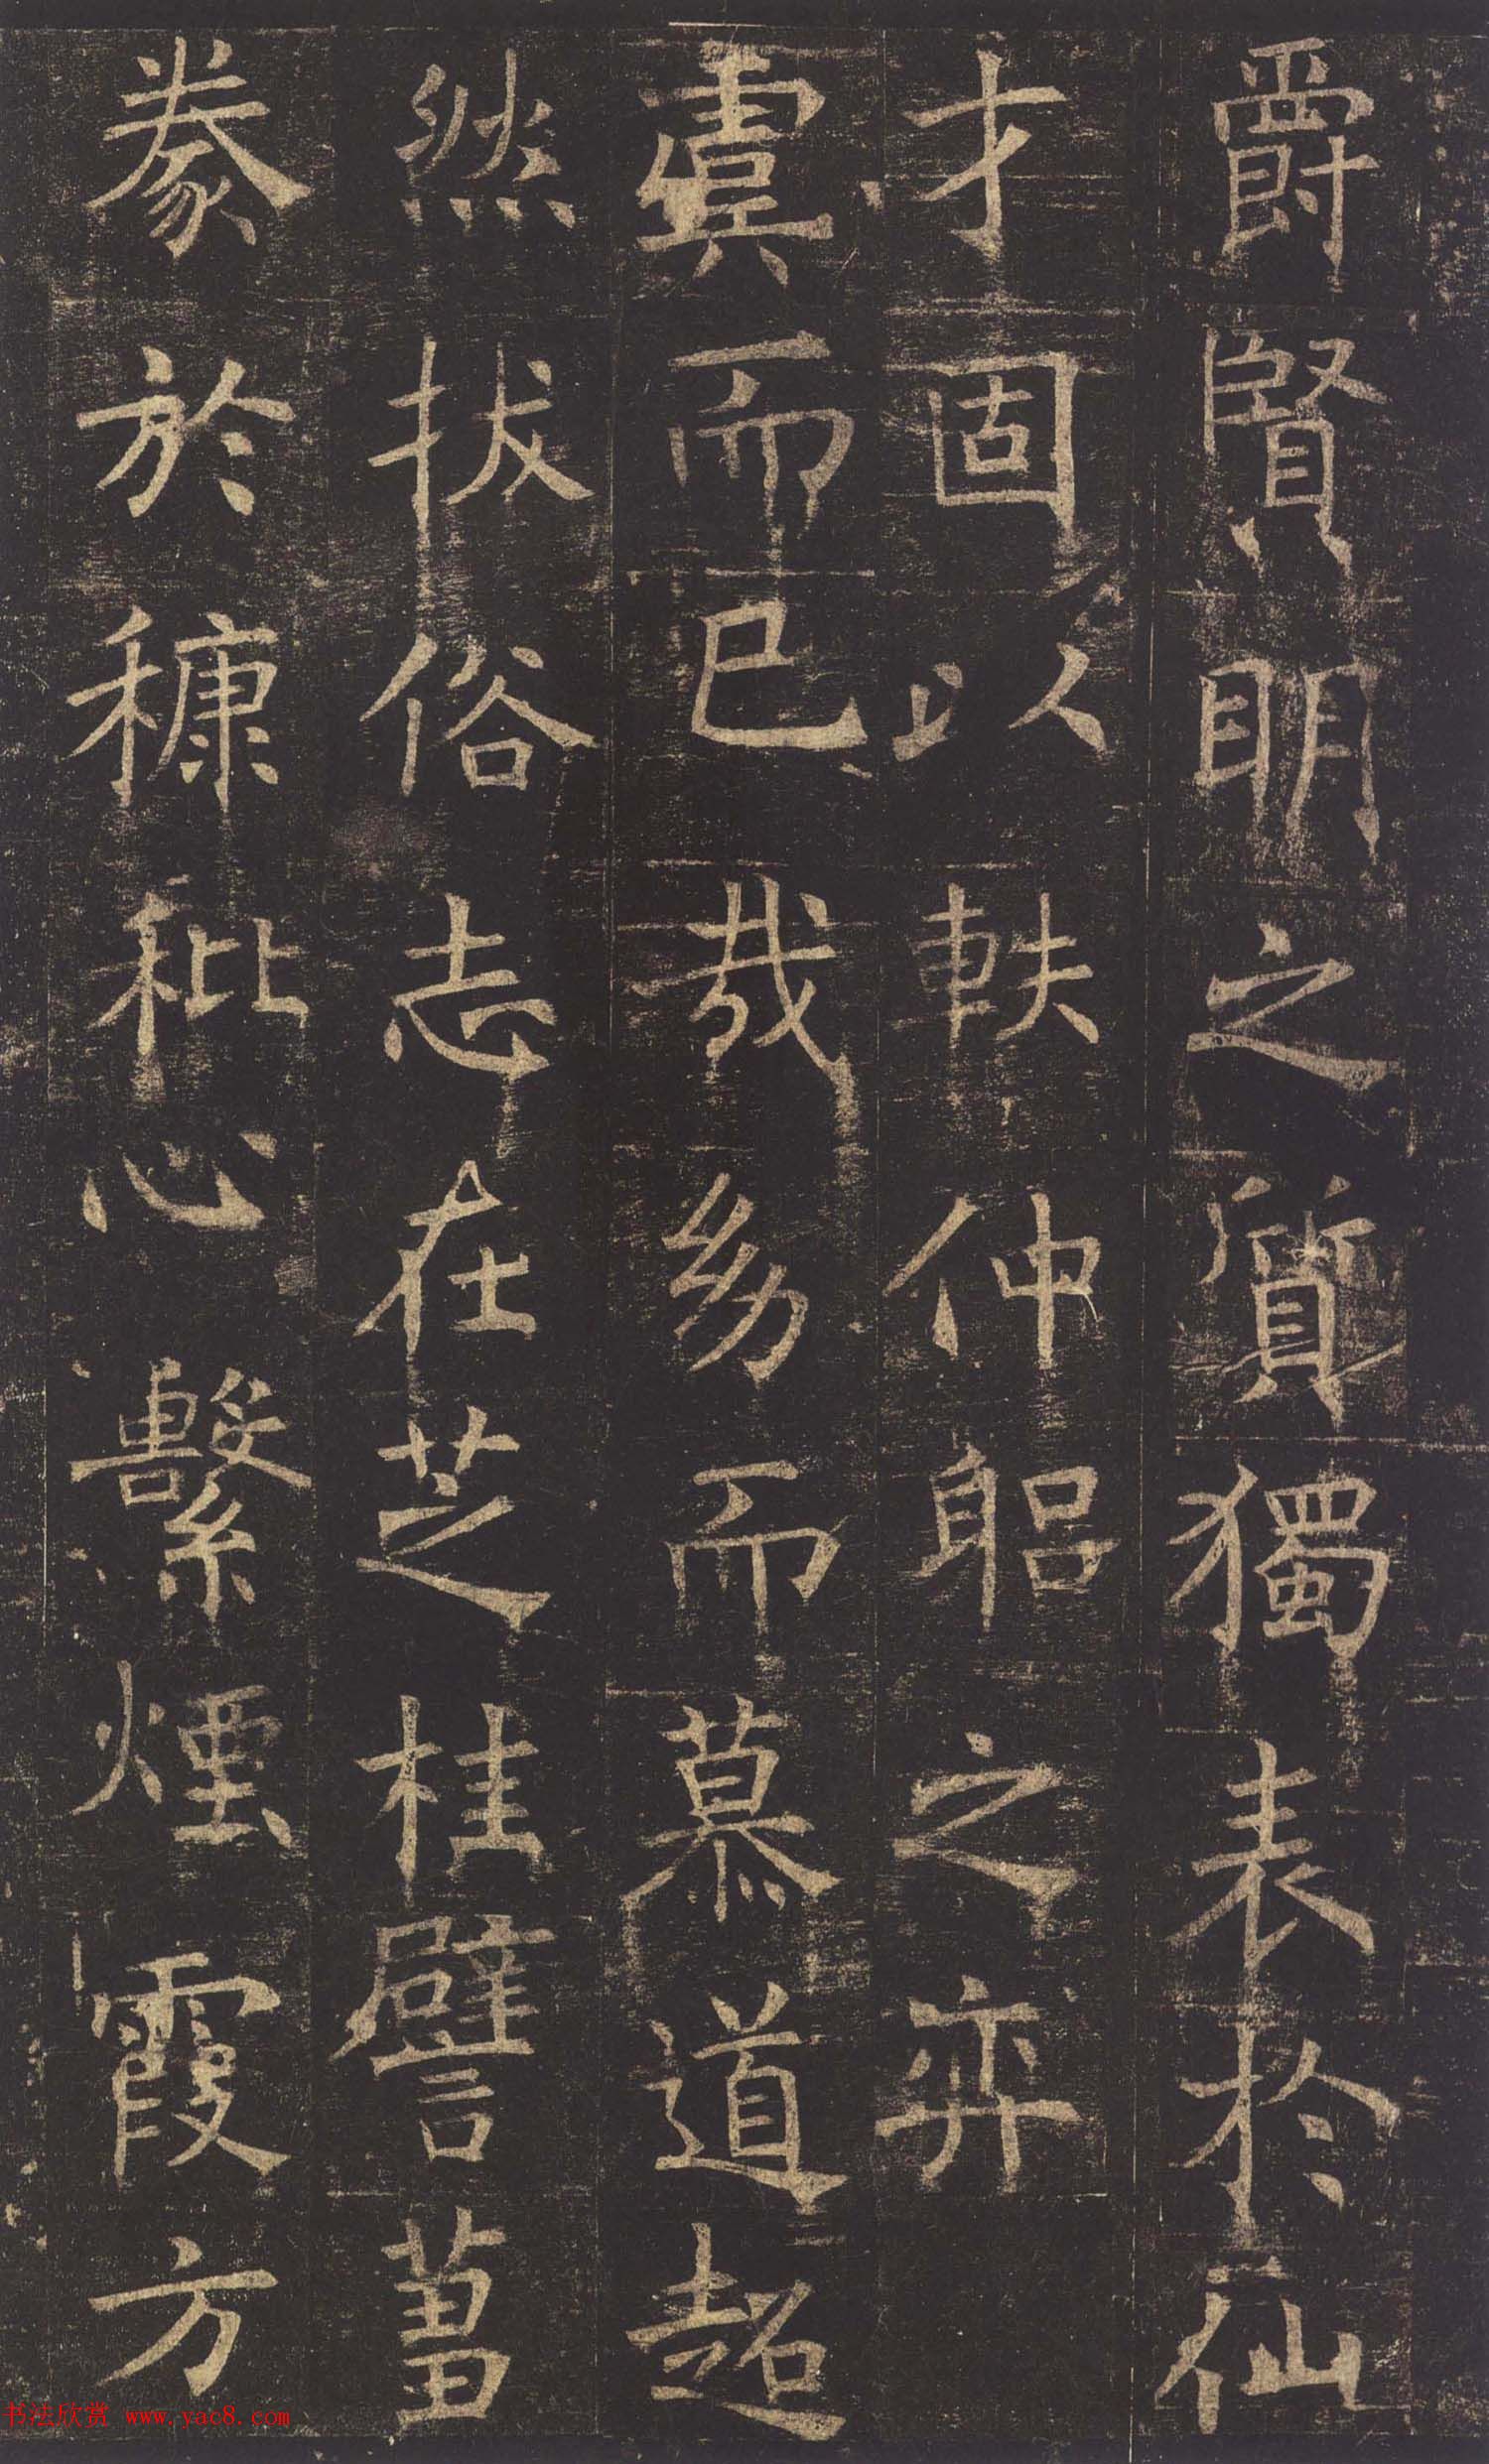 爵賢明之質獨表於仙
才固以軼仲躬之弈
寘而已哉幼而慕道超
然拔俗志在芝桂譬葘
豢於穅秕心繫煙霞方
书法欣赏 www.yac8.com